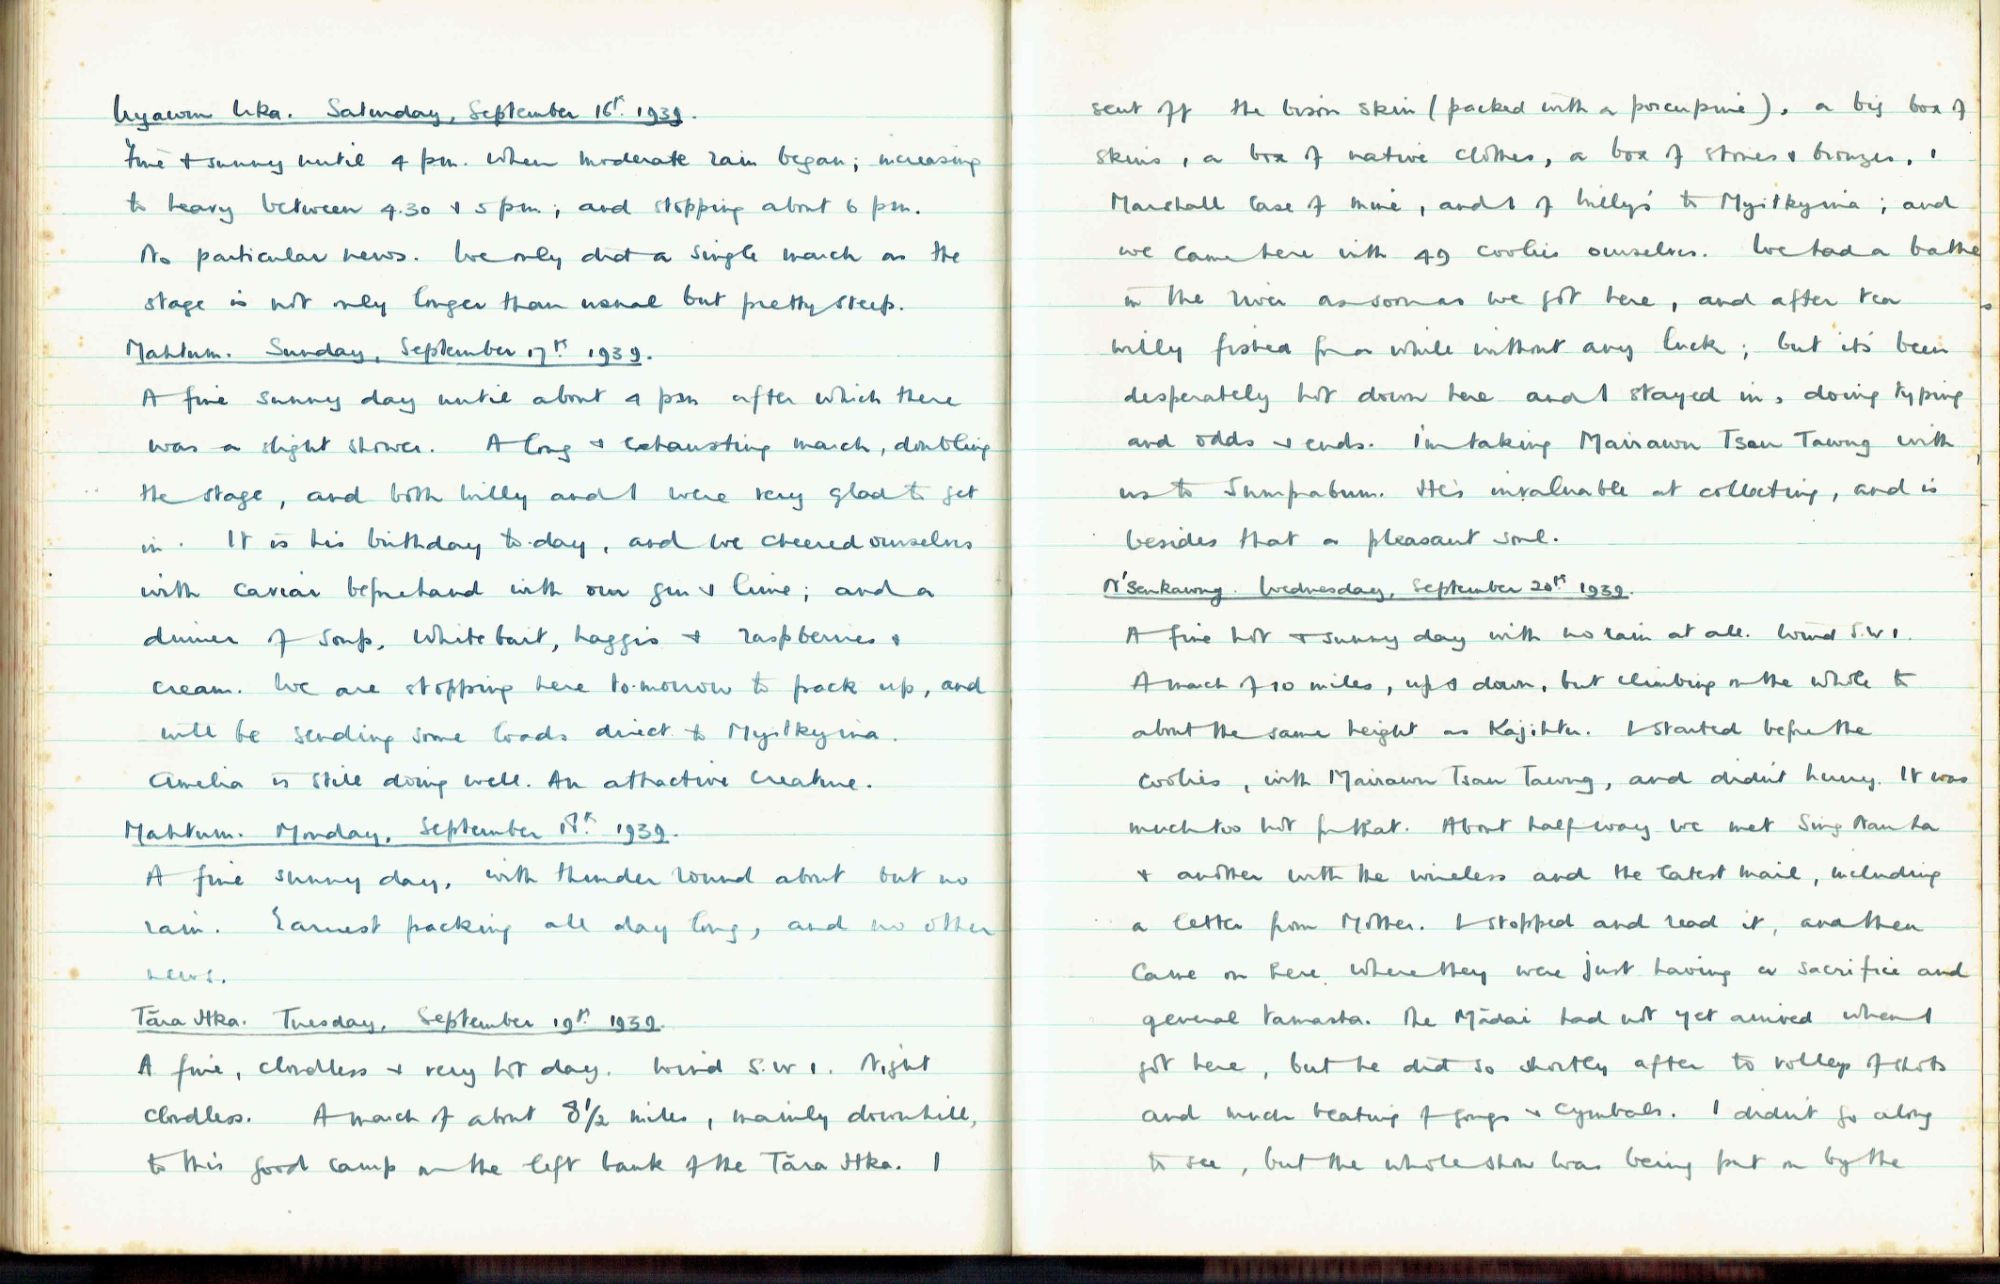 Uyawm Uka. Saturday, September 16th. 1939.
Fine & sunny until 4 pm. when moderate rain began; increasing
to heavy between 4.30 & 5 pm; and stopping about 6 pm.
No particular news. We only did a single march as the
stage is not only longer than usual but pretty steep.
Mahtum. Sunday, September 17th. 1939.
A fine sunny day until about 4 pm after which there
was a slight shower. A long & exhausting march, doubling
the stage, and both Willy and I were very glad to get
in. It is his birthday to-day, and we cheered ourselves
with caviar beforehand with our gin & lime; and a
dinner of soup, whitebait, haggis & raspberries &
cream. We are stopping here to-morrow to pack up, and
will be sending some loads direct to Myitkyina.
Amelia is still doing well. An attractive creature.
Mahtum. Monday, September 18th. 1939.
A fine sunny day, with thunder round about but no
rain. Earnest packing all day long, and no other
news.
Tāra Hka. Tuesday, September 19th. 1939.
A fine, cloudless & very hot day. Wind S.W 1. Night
cloudless. A march of about 8½ miles, mainly downhill,
to this good camp on the left bank of the Tāra Hka. I
sent off the bison skin (packed with a porcupine), a big box of
skins, a box of native clothes, a box of stones & bronzes, 1
Marshall case of mine, and 1 of Willy's to Myitkyina; and
we came here with 49 coolies ourselves. We had a bathe
in the river as soon as we got here, and after tea
Willy fished for a while without any luck; but it's been
desperately hot down here and I stayed in, doing typing
and odds & ends. I'm taking Mairawn Tsan Tawng with
us to Sumprabum. He's invaluable at collecting, and is
besides that a pleasant soul.
N'Senkawng. Wednesday, September 20th 1939.
A fine hot & sunny day with no rain at all. Wind S.W 1.
A march of 10 miles, up & down, but climbing on the whole to
about the same height as Kajihtu. I started before the
coolies, with Mairawn Tsan Tawng, and didn't hurry. It was
much too hot for that. About half-way we met Sing Nan ha
& another with the wireless and the latest mail, including
a letter from Mother. I stopped and read it, and then
came on here where they were just having a sacrifice and
general tamasha. The Mādai had not yet arrived when I
got here, but he did so shortly after to volleys of shots
and much beating of gongs & cymbals. I didn't go along
to see, but the whole show was being put on by the